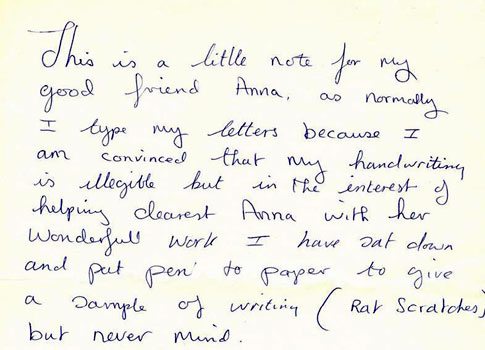 This is a little note for my
good friend Anna, as normally
I type my letters because I
am convinced that my handwriting
is illegible but in the interest of
helping dearest Anna with her
Wonderfull work I have sat down
and put pen to paper to give
a sample of writing (Rat Scratches)
but never mind.